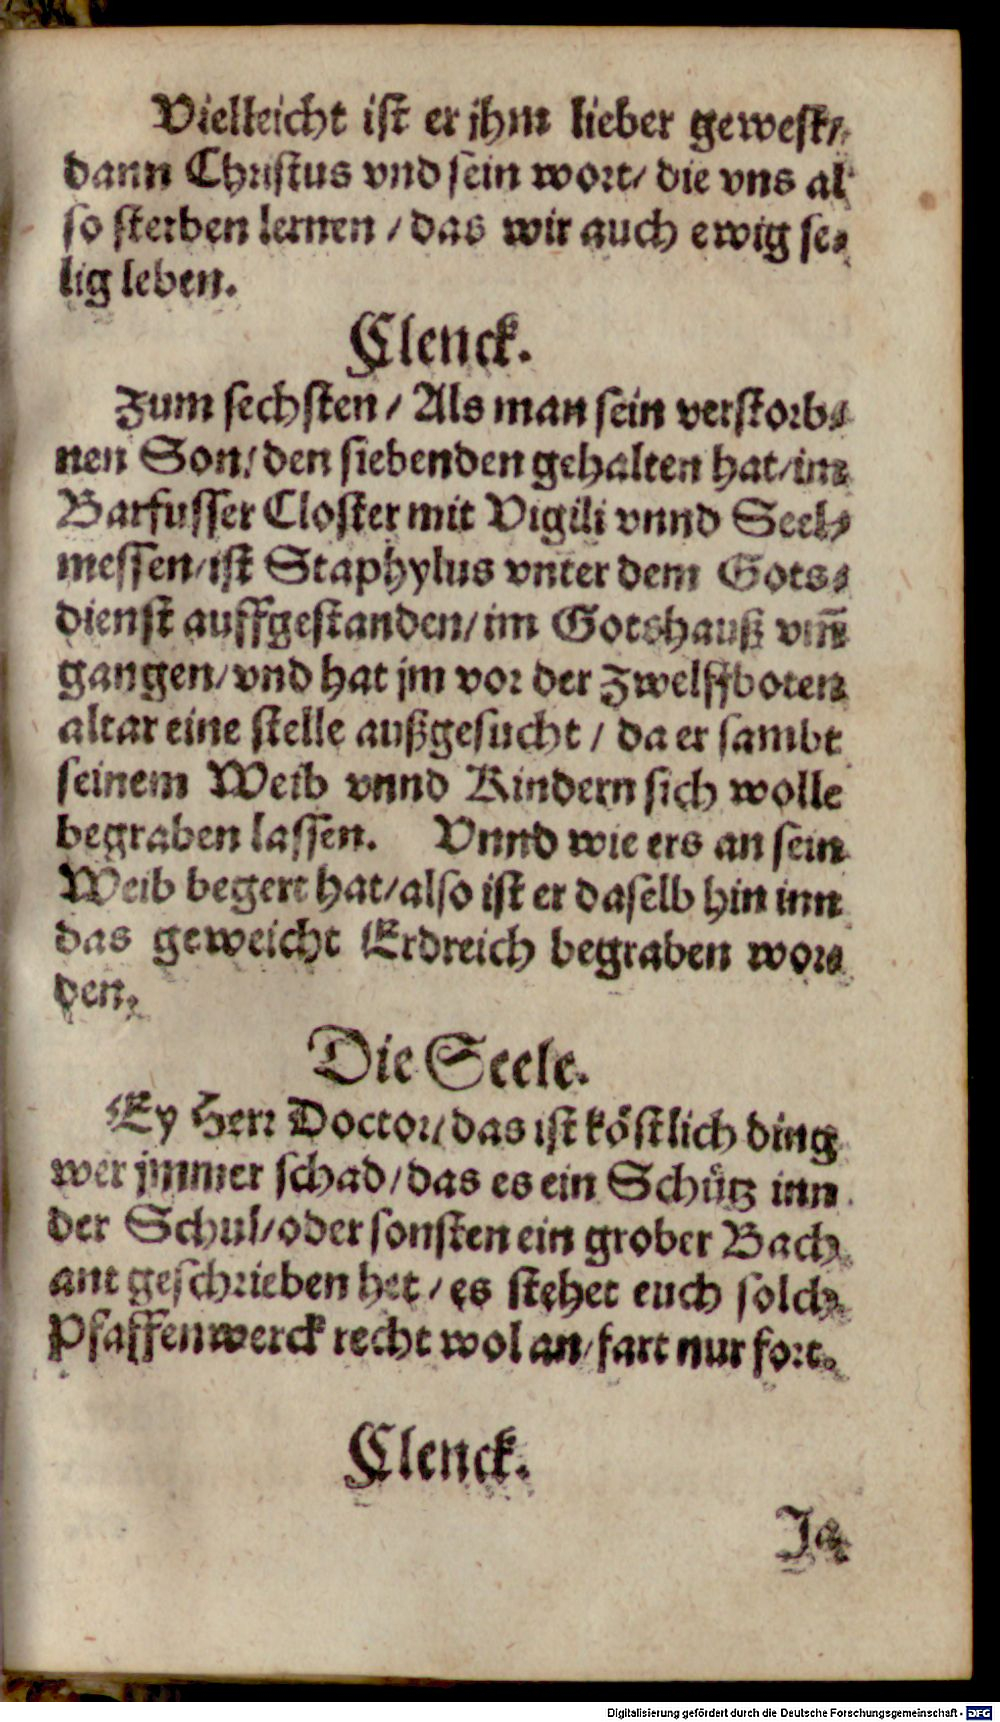 Vielleicht ist er jhm lieber gewest/
dann Christus vnd sein wort/ die vns al
so sterben lernen / das wir auch ewig se⸗
lig leben.
Clenck.
Zum sechsten / Als man sein verstorb⸗
nen Son/ den siebenden gehalten hat/ im
Barfusser Closter mit Vigili vnnd Seel⸗
messen/ ist Staphylus vnter dem Gots⸗
dienst auffgestanden/ im Gotshauß vm̄
gangen/ vnd hat jm vor der Zwelffboten
altar eine stelle außgesucht / da er sambt
seinem Weib vnnd Kindern sich wolle
begraben lassen. Vnnd wie ers an sein
Weib begert hat/ also ist er daselb hin inn
das geweicht Erdreich begraben wor⸗
den.
Die Seele.
Ey Herr Doctor/ das ist köstlich ding
wer jmmer schad/ das es ein Schütz inn
der Schul/ oder sonsten ein grober Bach
ant geschrieben het / es stehet euch solch
Pfaffenwerck recht wol an/ fart nur fort.
Clenck.
Ja
Digitalisierung gefördert durch die Deutsche Forschungsgemeinschaft - DFG